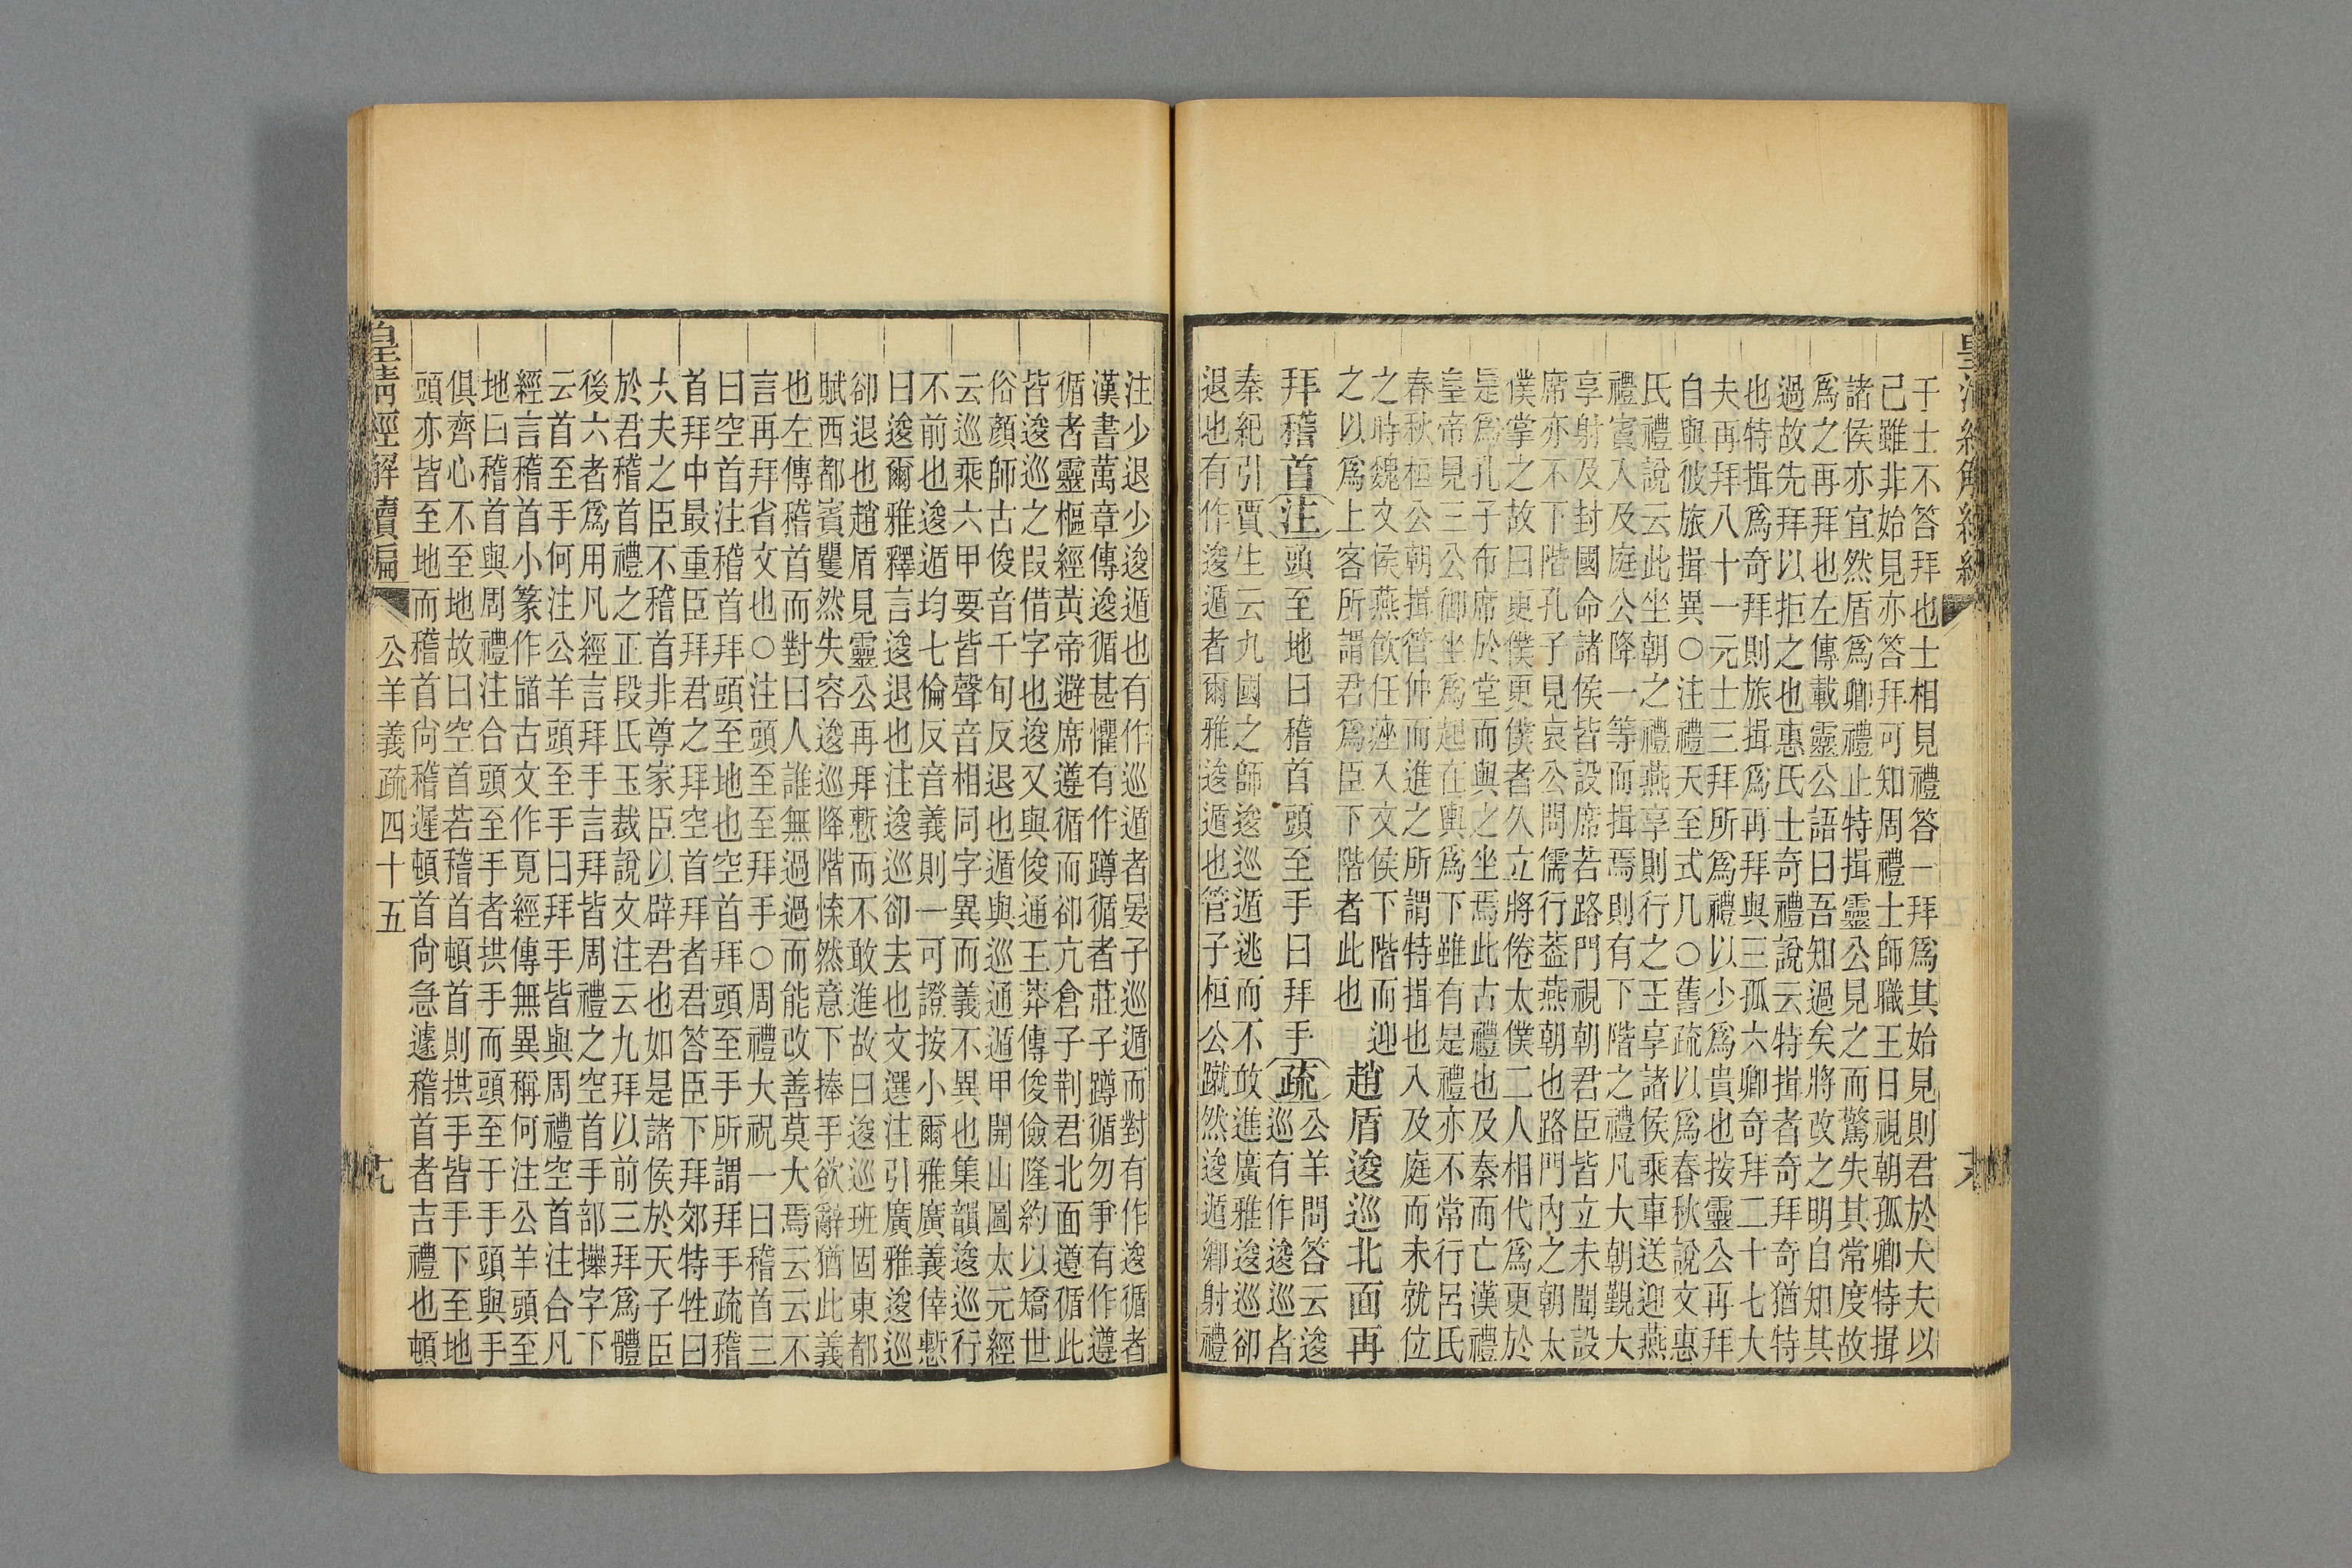 皇清經解續編
于士不答拜也士相見禮答一拜爲其始見則君於大夫以
已雖非始見亦答拜可知周禮士師職王日視朝孤卿特揖
諸侯亦宜然盾爲卿禮止特揖靈公見之而驚失其常度故
爲之再拜也左傳載靈公語曰吾知過矣將改之明自知其
過故先拜以拒之也惠氏士奇禮說云特揖者奇拜奇猶特
也特揖爲奇拜則旅揖爲再拜與三孤六卿奇拜二十七大
夫再拜八十一元士三拜所爲禮以少爲貴也按靈公再拜
自與彼旅揖異○注禮天至式几○舊疏以爲春秋說文惠
氏禮說云此坐朝之禮燕享則行之王享諸侯乘車送迎燕
禮賓入及庭公降一等而揖焉則有下階之禮凡大朝覲大
享射及封國命諸侯皆設席若路門視朝君臣皆立未聞設
席亦不下階孔子見哀公問儒行葢燕朝也路門內之朝太
僕掌之故曰更僕更僕者久立將倦太僕二人相代爲更於
是爲孔子布席於堂而與之坐焉此古禮也及秦而亡漢禮
皇帝見三公御坐爲起在輿爲下雖有是禮亦不常行呂氏
春秋桓公朝揖管仲而進之所謂特揖也入及庭而未就位
之時魏文侯燕飲任座入文侯下階而迎
之以爲上客所謂君爲臣下階者此也
趙盾逡巡北面再
拜稽首注頭至地曰稽首頭至手曰拜手疏
公羊問答云逡
巡有作逡巡者
秦紀引賈生云九國之師逡巡遁逃而不敢進廣雅逡巡卻
退也有作逡遁者爾雅逡遁也管子桓公蹴然逡遁鄉射禮
注少退少逡遁也有作巡遁者晏子巡遁而對有作逡循者
漢書萬章傳逡循甚懼有作蹲循者莊子蹲循勿爭有作遵
循者靈樞經黃帝避席遵循而卻亢倉子荆君北面遵循此
皆逡巡之叚借字也逡又與俊通王莽傳俊儉隆約以矯世
俗顏師古俊音千旬反退也遁與巡通遁甲開山圖太元經
云巡乘六甲要皆聲音相同字異而義不異也集韻逡巡行
不前也逡遁均七倫反音義則一可證按小爾雅廣義倖慙
曰逡爾雅釋言逡退也注逡巡卻去也文選注引廣雅逡巡
卻退也趙盾見靈公再拜慙而不敢進故曰逡巡班固東都
賦西都賓矍然失容逡巡降階愫然意下捧手欲辭猶此義
也左傳稽首而對曰人誰無過過而能改善莫大焉云云不
言再拜省文也○注頭至至拜手○周禮大祝一曰稽首三
曰空首注稽首拜頭至地也空首拜頭至手所謂拜手疏稽
首拜中最重臣拜君之拜空首拜者君答臣下拜郊特牲曰
大夫之臣不稽首非尊家臣以辟君也如是諸侯於天子臣
於君稽首禮之正段氏玉裁說文注云九拜以前三拜爲體
後六者爲用凡經言拜手言拜皆周禮之空首手部字下
云首至手何注公羊頭至手曰拜手皆與周禮空首注合凡
經言稽首小篆作䭫古文作經傳無異稱何注公羊頭至
地曰稽首與周禮注合頭至手者拱手而頭至于手頭與手
俱齊心不至地故曰空首若稽首頓首則拱手皆手下至地
頭亦皆至地而稽首尙稽遲頓首尙急遽稽首者吉禮也頓
皇清經解續編 公羊義疏四十五